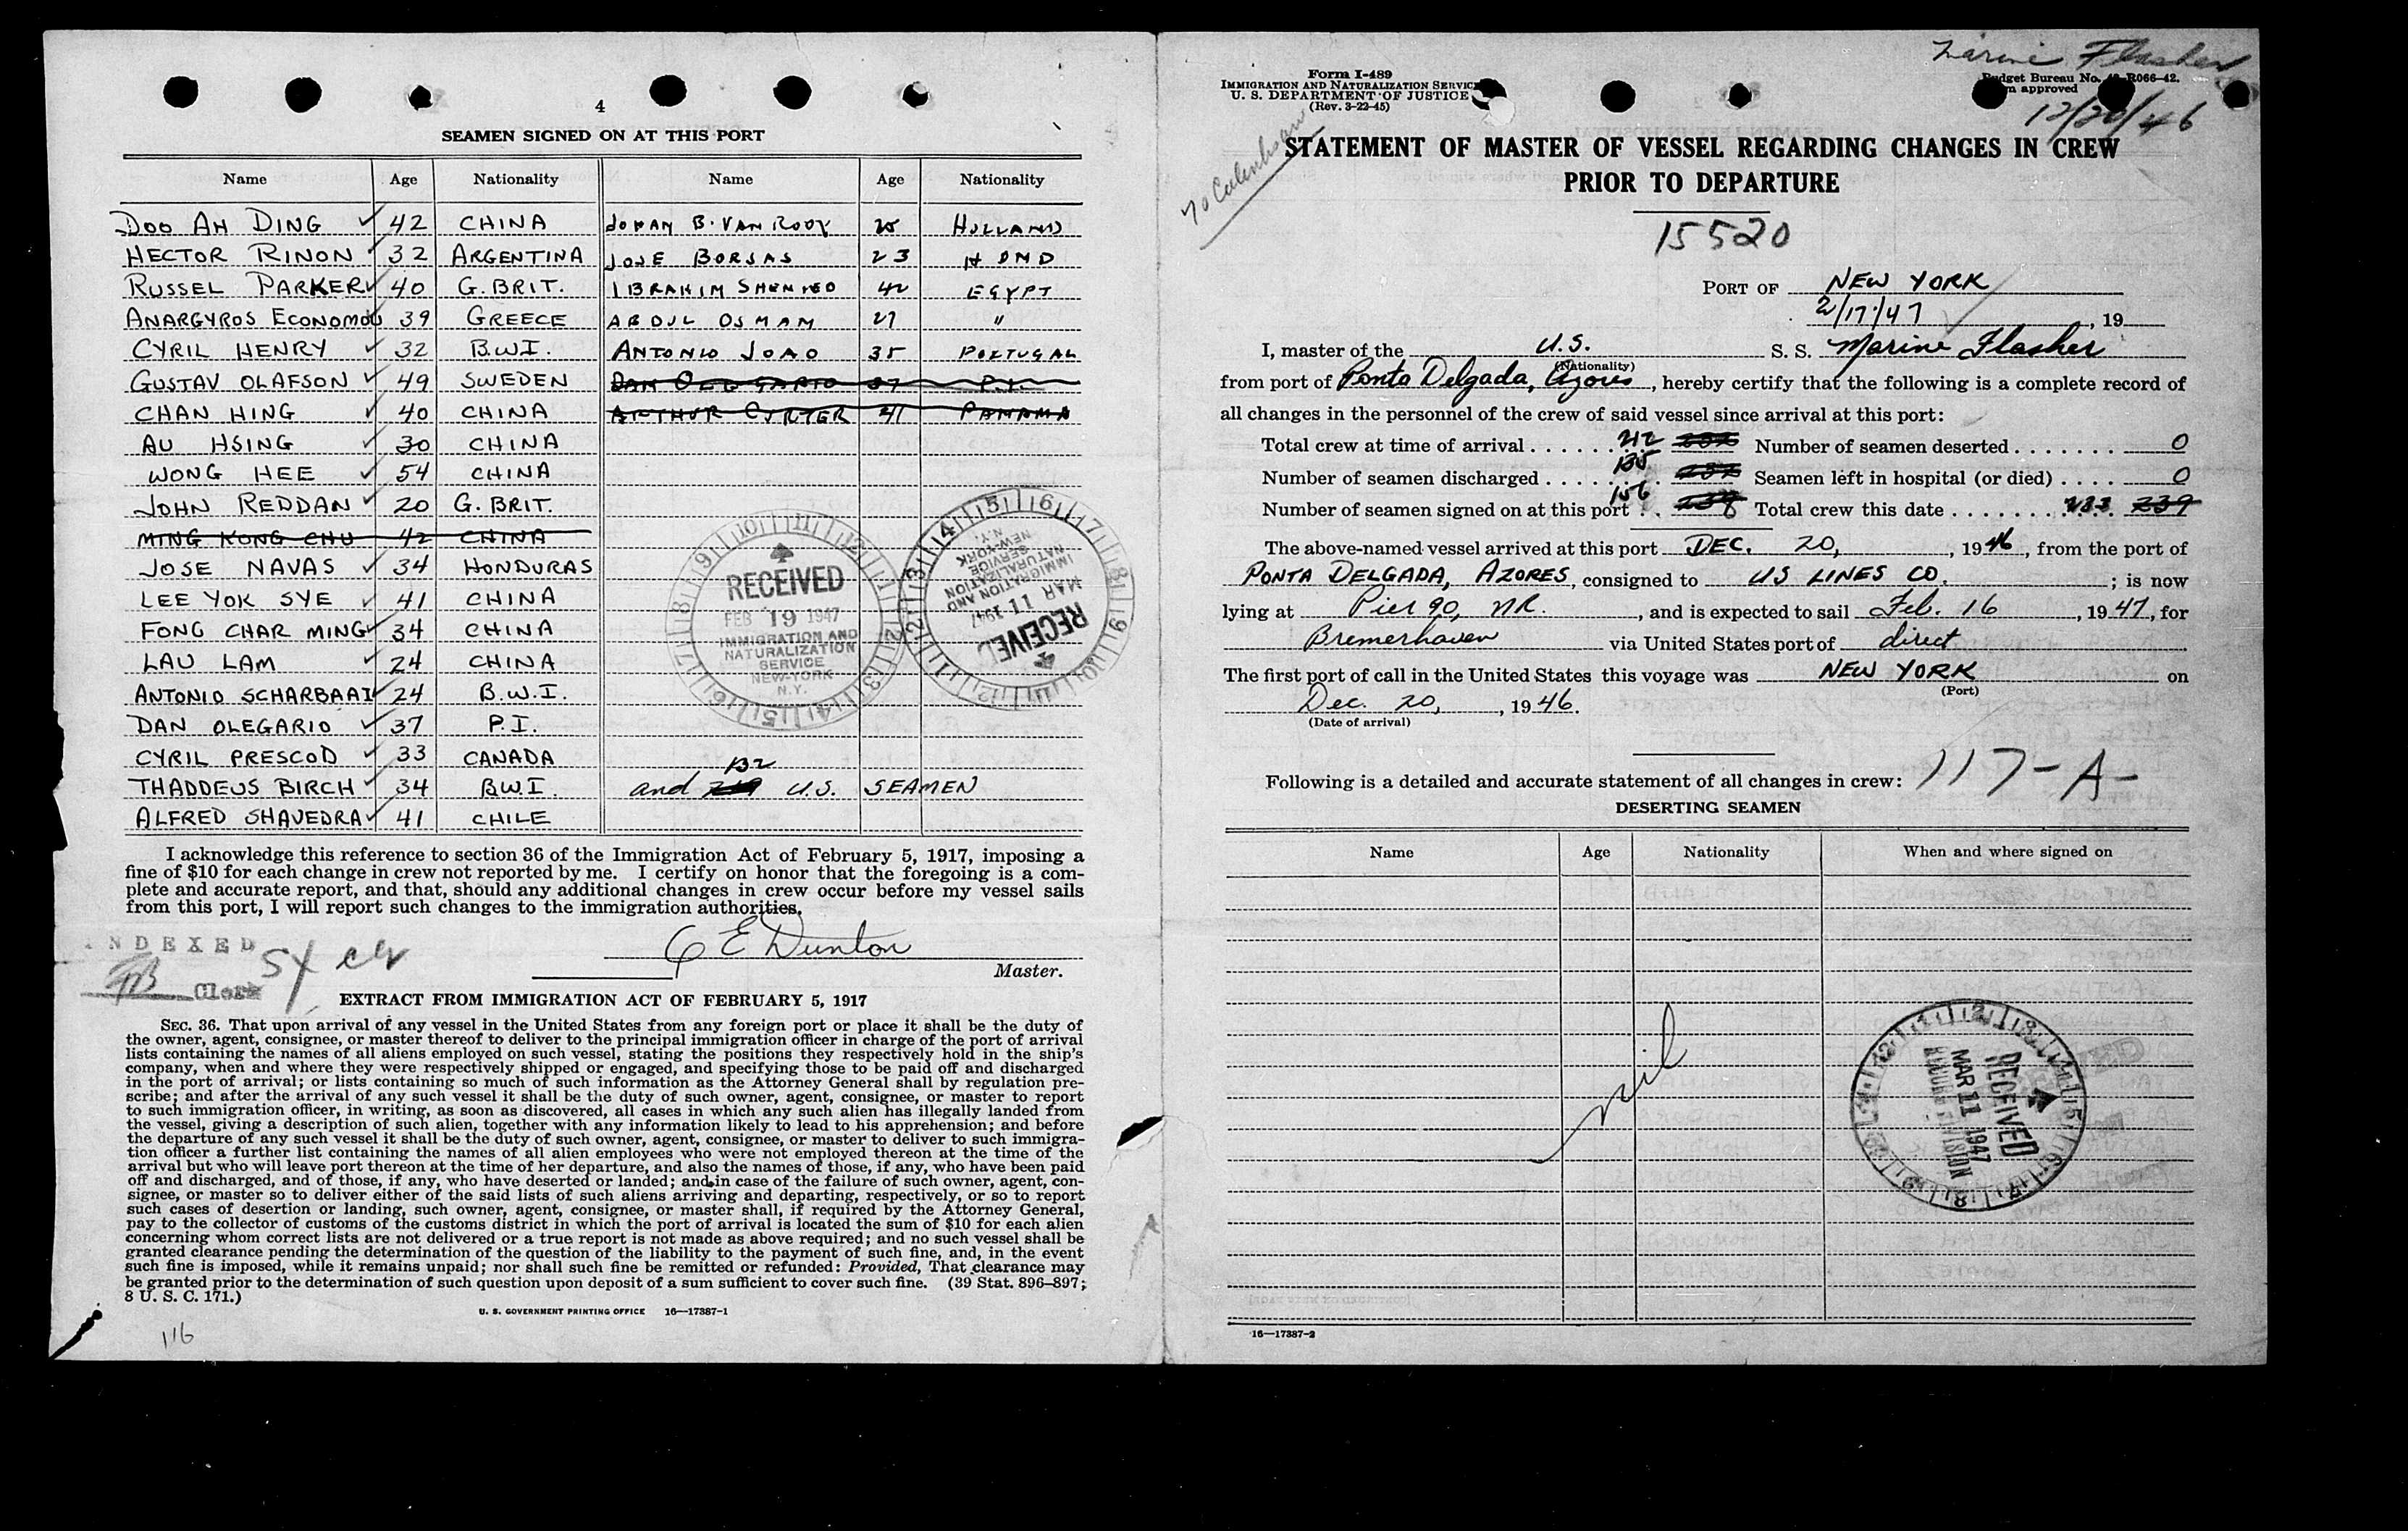 4
SEAMEN SIGNED ON AT THIS PORT
Name Age Nationality Name Age Nationality
DOO AH DING ✓ 42 CHINA JOHAN B. VAN ROOY 25 HOLLAND
HECTOR RINON ✓ 32 ARGENTINA JOSE BORSAS 23 HOND
RUSSEL PARKER ✓ 40 G. BRIT. IBRAHIM 42 EGYPT
ANARGYROS ECONOMOU 39 GREECE ABDUL OSMAM 27 "
CYRIL HENRY ✓ 32 B.W.I. ANTONIO JOAO 35 PORTUGAL
GUSTAV OLAFSON ✓ 49 SWEDEN DAN OLEGARIO 37 P.I.
CHAN HING ✓ 40 CHINA ARTHUR CURTER 41 PANAMA
AU HSING ✓ 30 CHINA
WONG HEE ✓ 54 CHINA
JOHN REDDAN ✓ 20 G. BRIT.
MING KONG CHU 42 CHINA
JOSE NAVAS ✓ 34 HONDURAS
LEE YOK SYE ✓ 41 CHINA
FONG CHAR MING ✓ 34 CHINA
LAU LAM ✓ 24 CHINA
ANTONIO SCHARBAAI ✓ 24 B.W.I.
DAN OLEGARIO ✓ 37 P.I.
CYRIL PRESCOD ✓ 33 CANADA
132
THADDEUS BIRCH ✓ 34 B.W.I. and U.S. SEAMEN
ALFRED SHAVEDRA ✓ 41 CHILE
RECEIVED
FEB 19 1947
IMMIGRATION AND
NATURALIZATION
SERVICE
NEW-YORK
N.Y.
RECEIVED
MAR 11 1947
IMMIGRATION AND
NATURALIZATION
SERVICE
NEW-YORK
N.Y.
I acknowledge this reference to section 36 of the Immigration Act of February 5, 1917, imposing a
fine of $10 for each change in crew not reported by me. I certify on honor that the foregoing is a com-
plete and accurate report, and that, should any additional changes in crew occur before my vessel sails
from this port, I will report such changes to the immigration authorities.
C E Dunton
Master.
INDEXED
Clerk
EXTRACT FROM IMMIGRATION ACT OF FEBRUARY 5, 1917
SEC. 36. That upon arrival of any vessel in the United States from any foreign port or place it shall be the duty of
the owner, agent, consignee, or master thereof to deliver to the principal immigration officer in charge of the port of arrival
lists containing the names of all aliens employed on such vessel, stating the positions they respectively hold in the ship's
company, when and where they were respectively shipped or engaged, and specifying those to be paid off and discharged
in the port of arrival; or lists containing so much of such information as the Attorney General shall by regulation pre-
scribe; and after the arrival of any such vessel it shall be the duty of such owner, agent, consignee, or master to report
to such immigration officer, in writing, as soon as discovered, all cases in which any such alien has illegally landed from
the vessel, giving a description of such alien, together with any information likely to lead to his apprehension; and before
the departure of any such vessel it shall be the duty of such owner, agent, consignee, or master to deliver to such immigra-
tion officer a further list containing the names of all alien employees who were not employed thereon at the time of the
arrival but who will leave port thereon at the time of her departure, and also the names of those, if any, who have been paid
off and discharged, and of those, if any, who have deserted or landed; and in case of the failure of such owner, agent, con-
signee, or master so to deliver either of the said lists of such aliens arriving and departing, respectively, or so to report
such cases of desertion or landing, such owner, agent, consignee, or master shall, if required by the Attorney General,
pay to the collector of customs of the customs district in which the port of arrival is located the sum of $10 for each alien
concerning whom correct lists are not delivered or a true report is not made as above required; and no such vessel shall be
granted clearance pending the determination of the question of the liability to the payment of such fine, and, in the event
such fine is imposed, while it remains unpaid; nor shall such fine be remitted or refunded: Provided, That clearance may
be granted prior to the determination of such question upon deposit of a sum sufficient to cover such fine. (39 Stat. 896–897;
8 U. S. C. 171.)
U. S. GOVERNMENT PRINTING OFFICE 16—17387-1
116
Marine Flasher
12/20/46
Form I-489
IMMIGRATION AND NATURALIZATION SERVICE
U. S. DEPARTMENT OF JUSTICE
(Rev. 3-22-45)
Budget Bureau No. R066-42.
approved
STATEMENT OF MASTER OF VESSEL REGARDING CHANGES IN CREW
PRIOR TO DEPARTURE
15520
PORT OF NEW YORK
2/17/47, 19
I, master of the U.S. S. S. Marine Flasher
(Nationality)
from port of Ponta Delgada, Azores, hereby certify that the following is a complete record of
all changes in the personnel of the crew of said vessel since arrival at this port:
Total crew at time of arrival 212 Number of seamen deserted 0
Number of seamen discharged 135 Seamen left in hospital (or died) 0
Number of seamen signed on at this port 156 Total crew this date 233 239
The above-named vessel arrived at this port DEC. 20, 1946, from the port of
PONTA DELGADA, AZORES, consigned to US LINES CO.; is now
lying at Pier 90, NR., and is expected to sail Feb. 16, 1947, for
Bremerhaven via United States port of direct
The first port of call in the United States this voyage was NEW YORK on
(Port)
Dec. 20, 1946.
(Date of arrival)
Following is a detailed and accurate statement of all changes in crew: 117-A-
DESERTING SEAMEN
Name Age Nationality When and where signed on
nil
RECEIVED
MAR 11 1947
16—17387-2